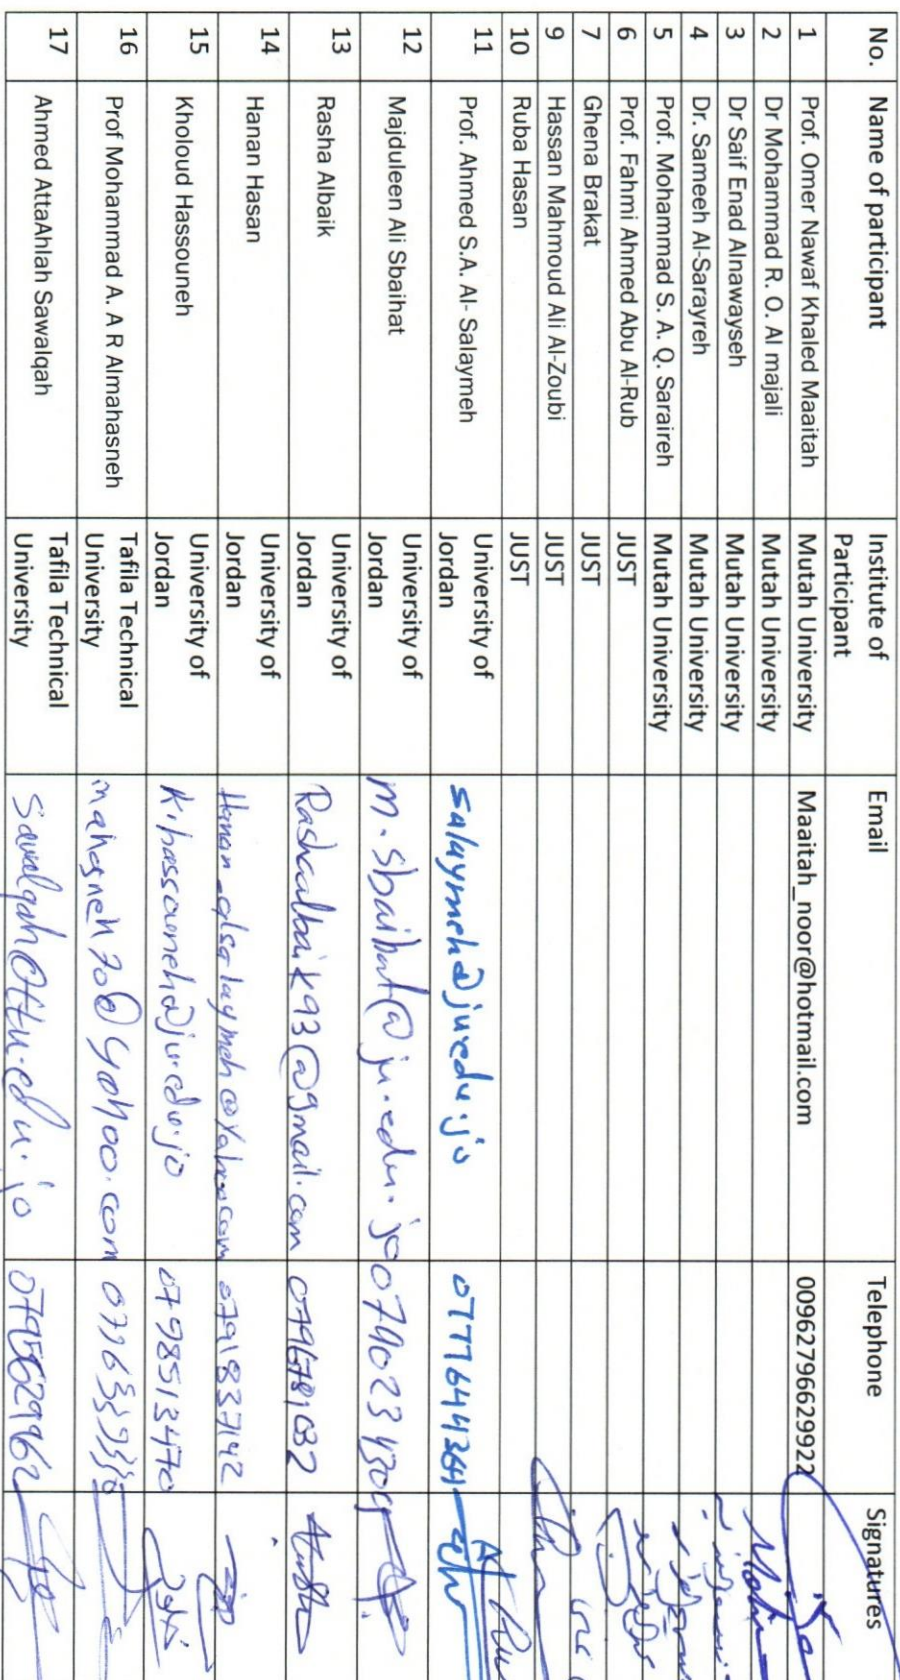 No. Name of participant Institute of Participant Email Telephone Signatures
1 Prof. Omer Nawaf Khaled Maaitah Mutah University Maaitah_noor@hotmail.com 00962796629922
2 Dr Mohammad R. O. Al majali Mutah University
3 Dr Saif Enad Alnawayseh Mutah University
4 Dr. Sameeh Al-Sarayreh Mutah University
5 Prof. Mohammad S. A. Q. Saraireh Mutah University
6 Prof. Fahmi Ahmed Abu Al-Rub JUST
7 Ghena Brakat JUST
9 Hassan Mahmoud Ali Al-Zoubi JUST
10 Ruba Hasan JUST
11 Prof. Ahmed S.A. Al- Salaymeh University of Jordan salaymeh@ju.edu.jo 0777644364
12 Majduleen Ali Sbaihat University of Jordan m.sbaihat@ju.edu.jo
13 Rasha Albaik University of Jordan Rashaalbaik93@gmail.com
14 Hanan Hasan University of Jordan Hanan_alsalaymeh@yahoo.com 0791837142
15 Kholoud Hassouneh University of Jordan k.hassouneh@ju.edu.jo 0798513470
16 Prof Mohammad A. A R Almahasneh Tafila Technical University mahasneh70@yahoo.com
17 Ahmed AttaAhlah Sawalqah Tafila Technical University sawalqah@ttu.edu.jo 0795629962